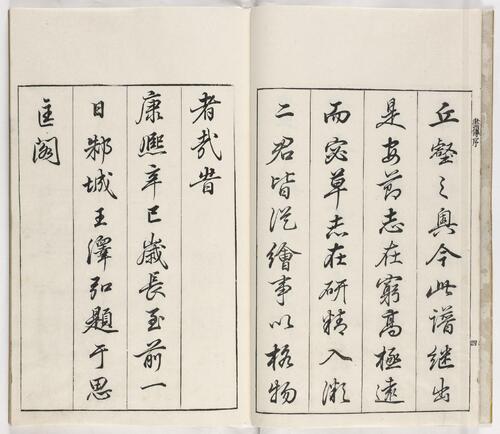 丘壑之奧今此譜繼出
是安節志在窮高極遠
而宓草志在研精入微
二君皆従繪事以格物
者哉旹
康熈辛巳歲長至前一
日鄴城王澤弘題于思
匡閣
畫傳序
四